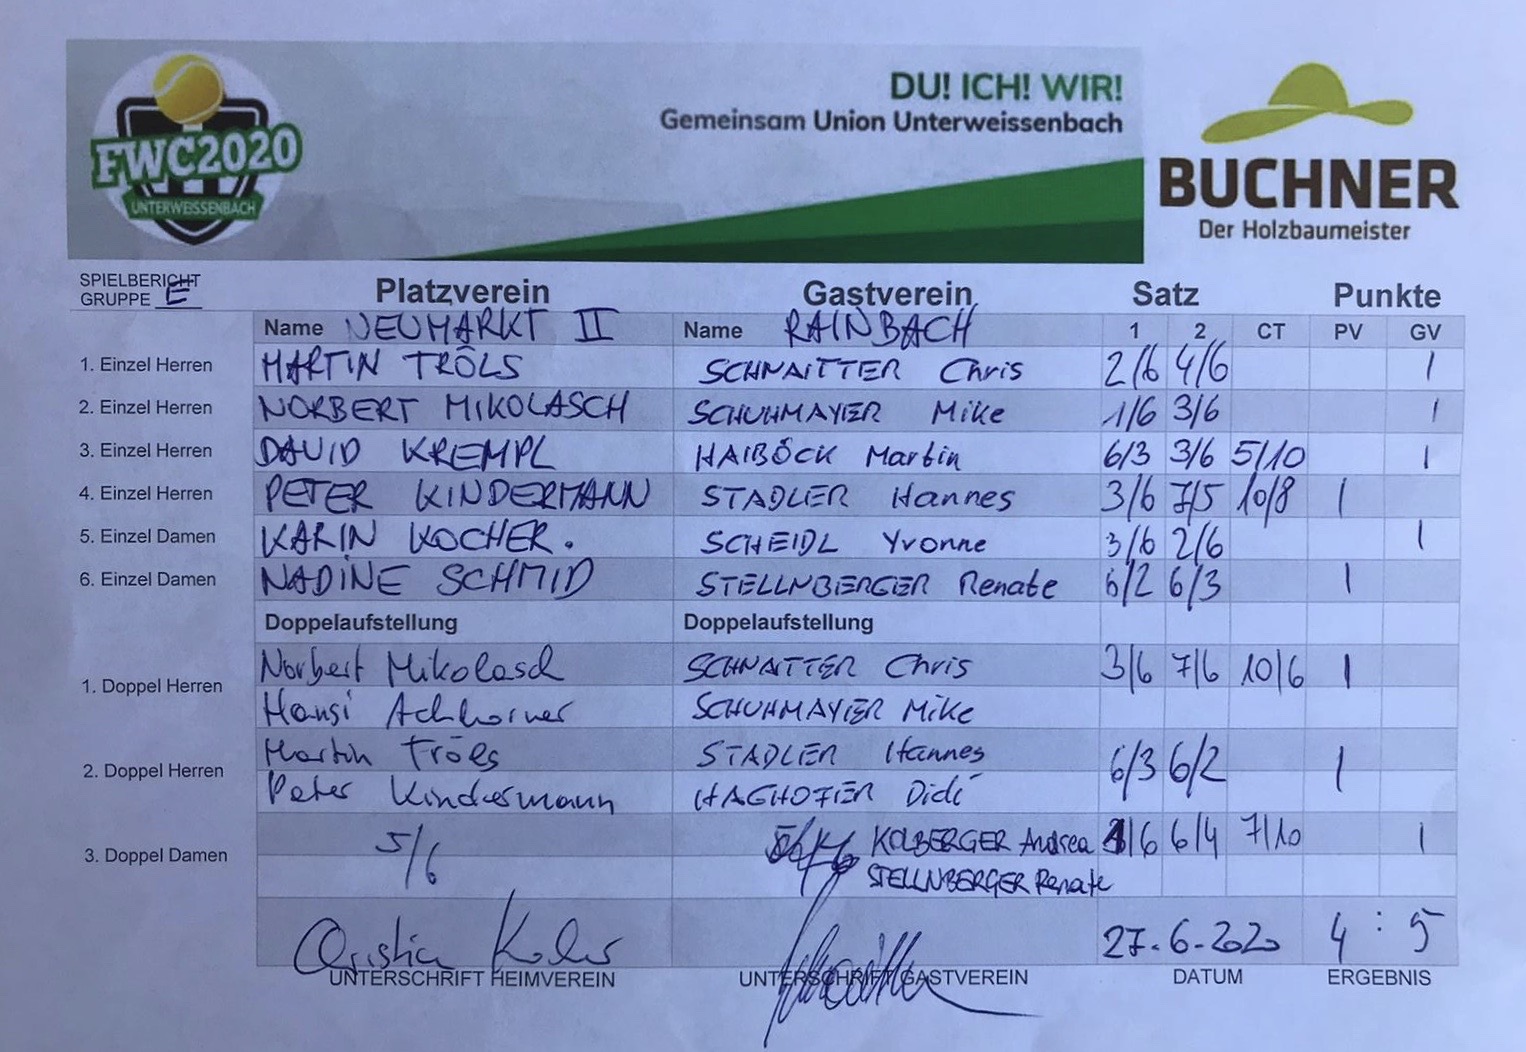 FWC2020
UNTERWEISSENBACH
DU! ICH! WIR!
Gemeinsam Union Unterweissenbach
BUCHNER
Der Holzbaumeister
SPIELBERICHT
GRUPPE E
Platzverein Gastverein Satz Punkte
Name NEUMARKT II Name RAINBACH 1 2 CT PV GV
1. Einzel Herren MARTIN TRÖLS SCHNAITTER Chris 2/6 4/6 1
2. Einzel Herren NORBERT MIKOLASCH SCHUHMAYER Mike 1/6 3/6 1
3. Einzel Herren DAVID KREMPL HAIBÖCK Martin 6/3 3/6 5/10 1
4. Einzel Herren PETER KINDERMANN STADLER Hannes 3/6 7/5 10/8 1
5. Einzel Damen KARIN KOCHER. SCHEIDL Yvonne 3/6 2/6 1
6. Einzel Damen NADINE SCHMID STELLNBERGER Renate 6/2 6/3 1
Doppelaufstellung Doppelaufstellung
1. Doppel Herren Norbert Mikolasch SCHNAITTER Chris 3/6 7/6 10/6 1
Hansi Achhorner SCHUHMAYER Mike
2. Doppel Herren Martin Tröls STADLER Hannes 6/3 6/2 1
Peter Kindermann HAGHOFER Didi
3. Doppel Damen 5/6 KOLBERGER Andrea 1/6 6/4 7/10 1
STELLNBERGER Renate
Christian 27.6.2020 4 : 5
UNTERSCHRIFT HEIMVEREIN UNTERSCHRIFT GASTVEREIN DATUM ERGEBNIS